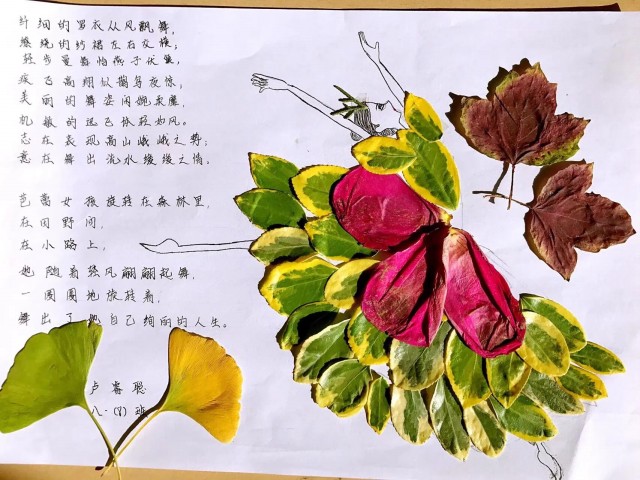 纤细的罗衣从风飘舞，
燃烧的纱裙左右交横；
轻步曼舞燕子伏巢，
疾飞高翔似鹊鸟夜惊，
美丽的舞姿闲婉柔靡，
机敏的迅飞体轻如风。
志在表现高山峨峨之势；
意在舞出流水缓缓之情。
芭蕾女孩旋转在森林里，
在田野间，
在小路上，
她随着轻风翩翩起舞，
一圈圈地旋转着，
舞出了她自己绚丽的人生。
卢睿聪
八·(8)班